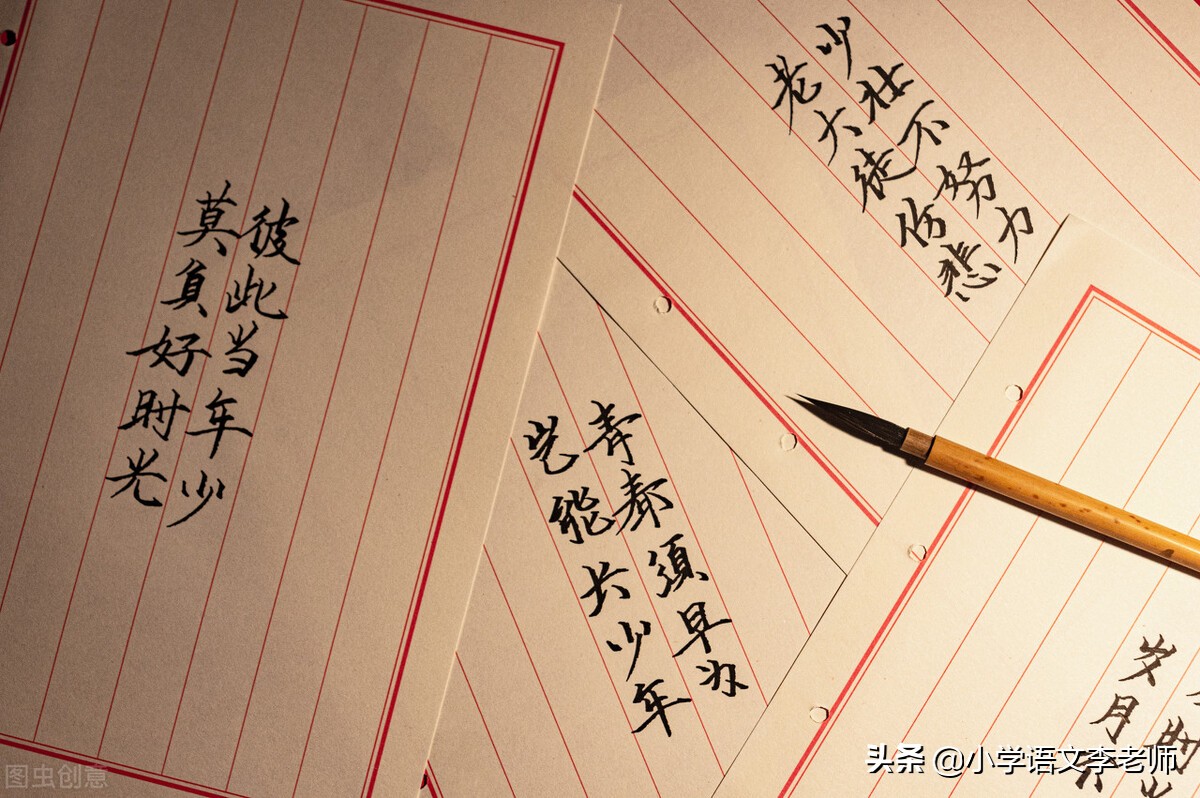 彼此当年少
莫負好时光
少壮不努力
老大徒伤悲
青春須早为
岂能长少年
时
岁月不
图虫创意
头条 @小学语文李老师